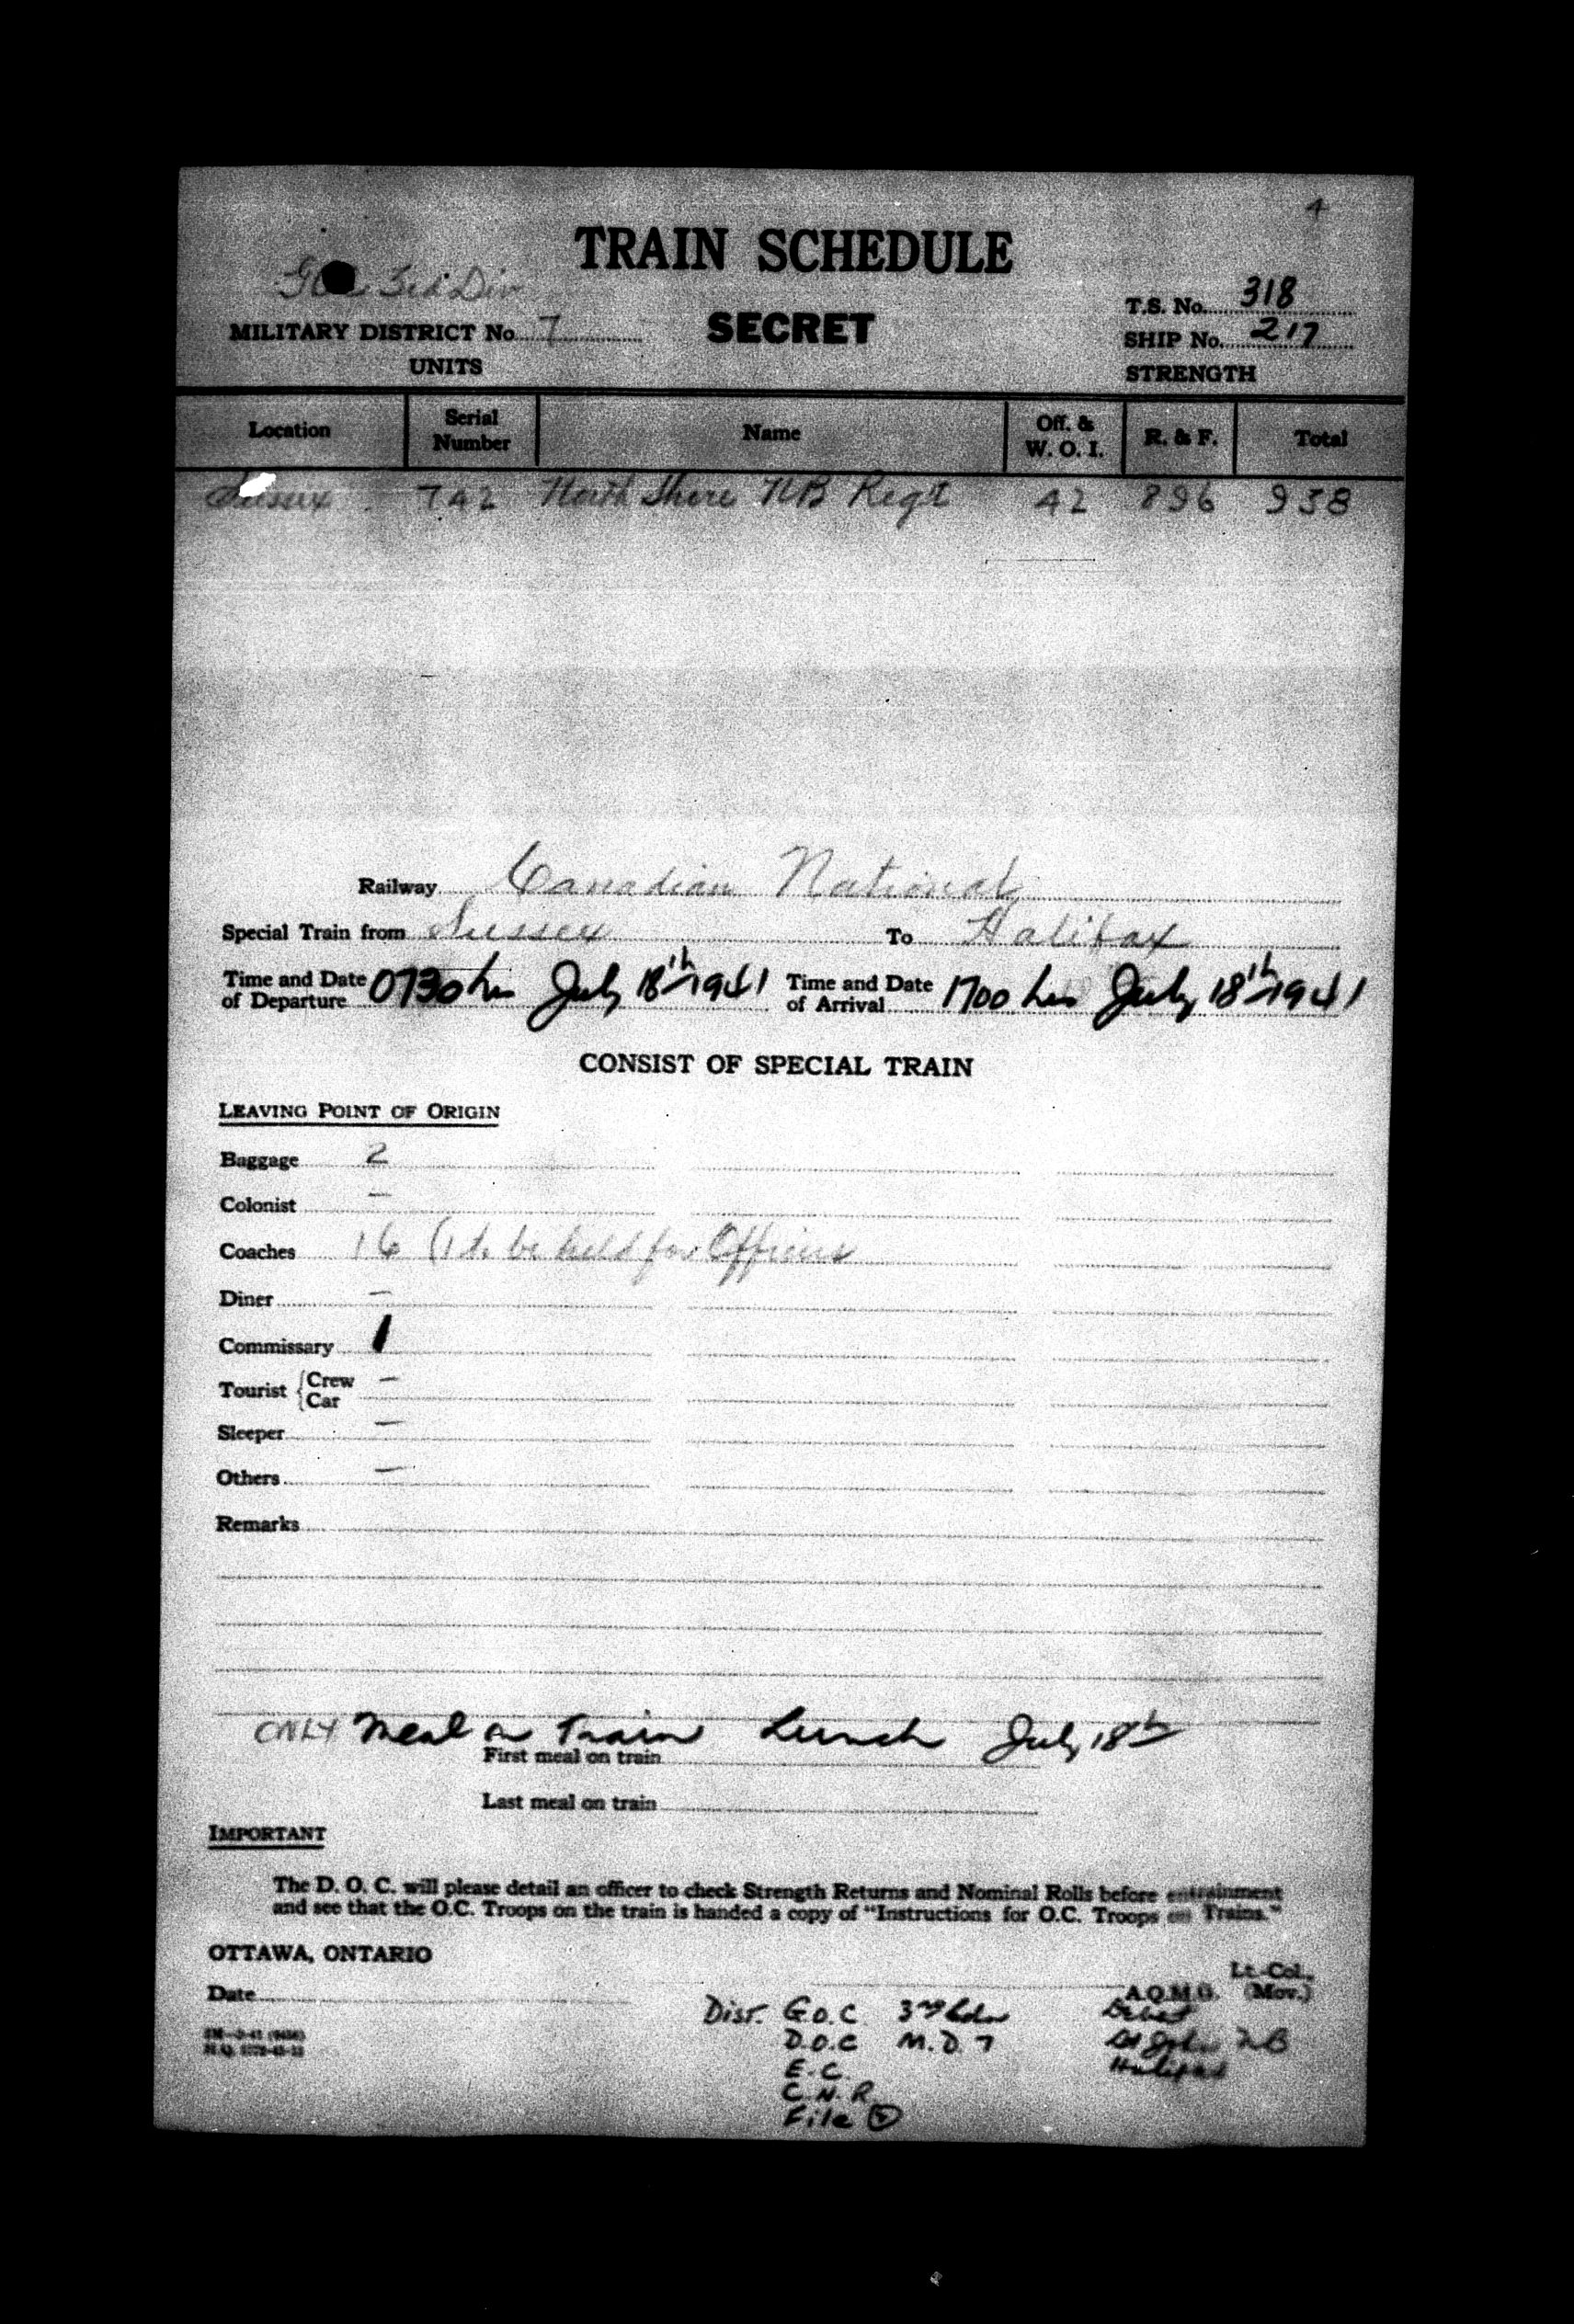 4
TRAIN SCHEDULE
3rd Div
SECRET
T.S. No. 318
MILITARY DISTRICT No. 7
SHIP No. 217
UNITS
STRENGTH
Location Serial Number Name Off. & W. O. I. R. & F. Total
Sussex 742 North Shore NB Reg't 42 896 938
Railway Canadian National
Special Train from Sussex To Halifax
Time and Date of Departure 0730 hrs July 18th 1941 Time and Date of Arrival 1700 hrs July 18th 1941
CONSIST OF SPECIAL TRAIN
LEAVING POINT OF ORIGIN
Baggage 2
Colonist —
Coaches 16 (1 to be held for Officers
Diner —
Commissary 1
Tourist { Crew Car —
Sleeper —
Others —
Remarks
ONLY Meal on Train Lunch July 18th
First meal on train
Last meal on train
IMPORTANT
The D. O. C. will please detail an officer to check Strength Returns and Nominal Rolls before entrainment
and see that the O.C. Troops on the train is handed a copy of "Instructions for O.C. Troops on Trains."
OTTAWA, ONTARIO
Lt.-Col.,
Date
A.Q.M.G. (Mov.)
Dist. G.O.C 3rd Cdn
D.O.C M.D. 7 St John NB
E.C. Halifax
C.N.R.
File